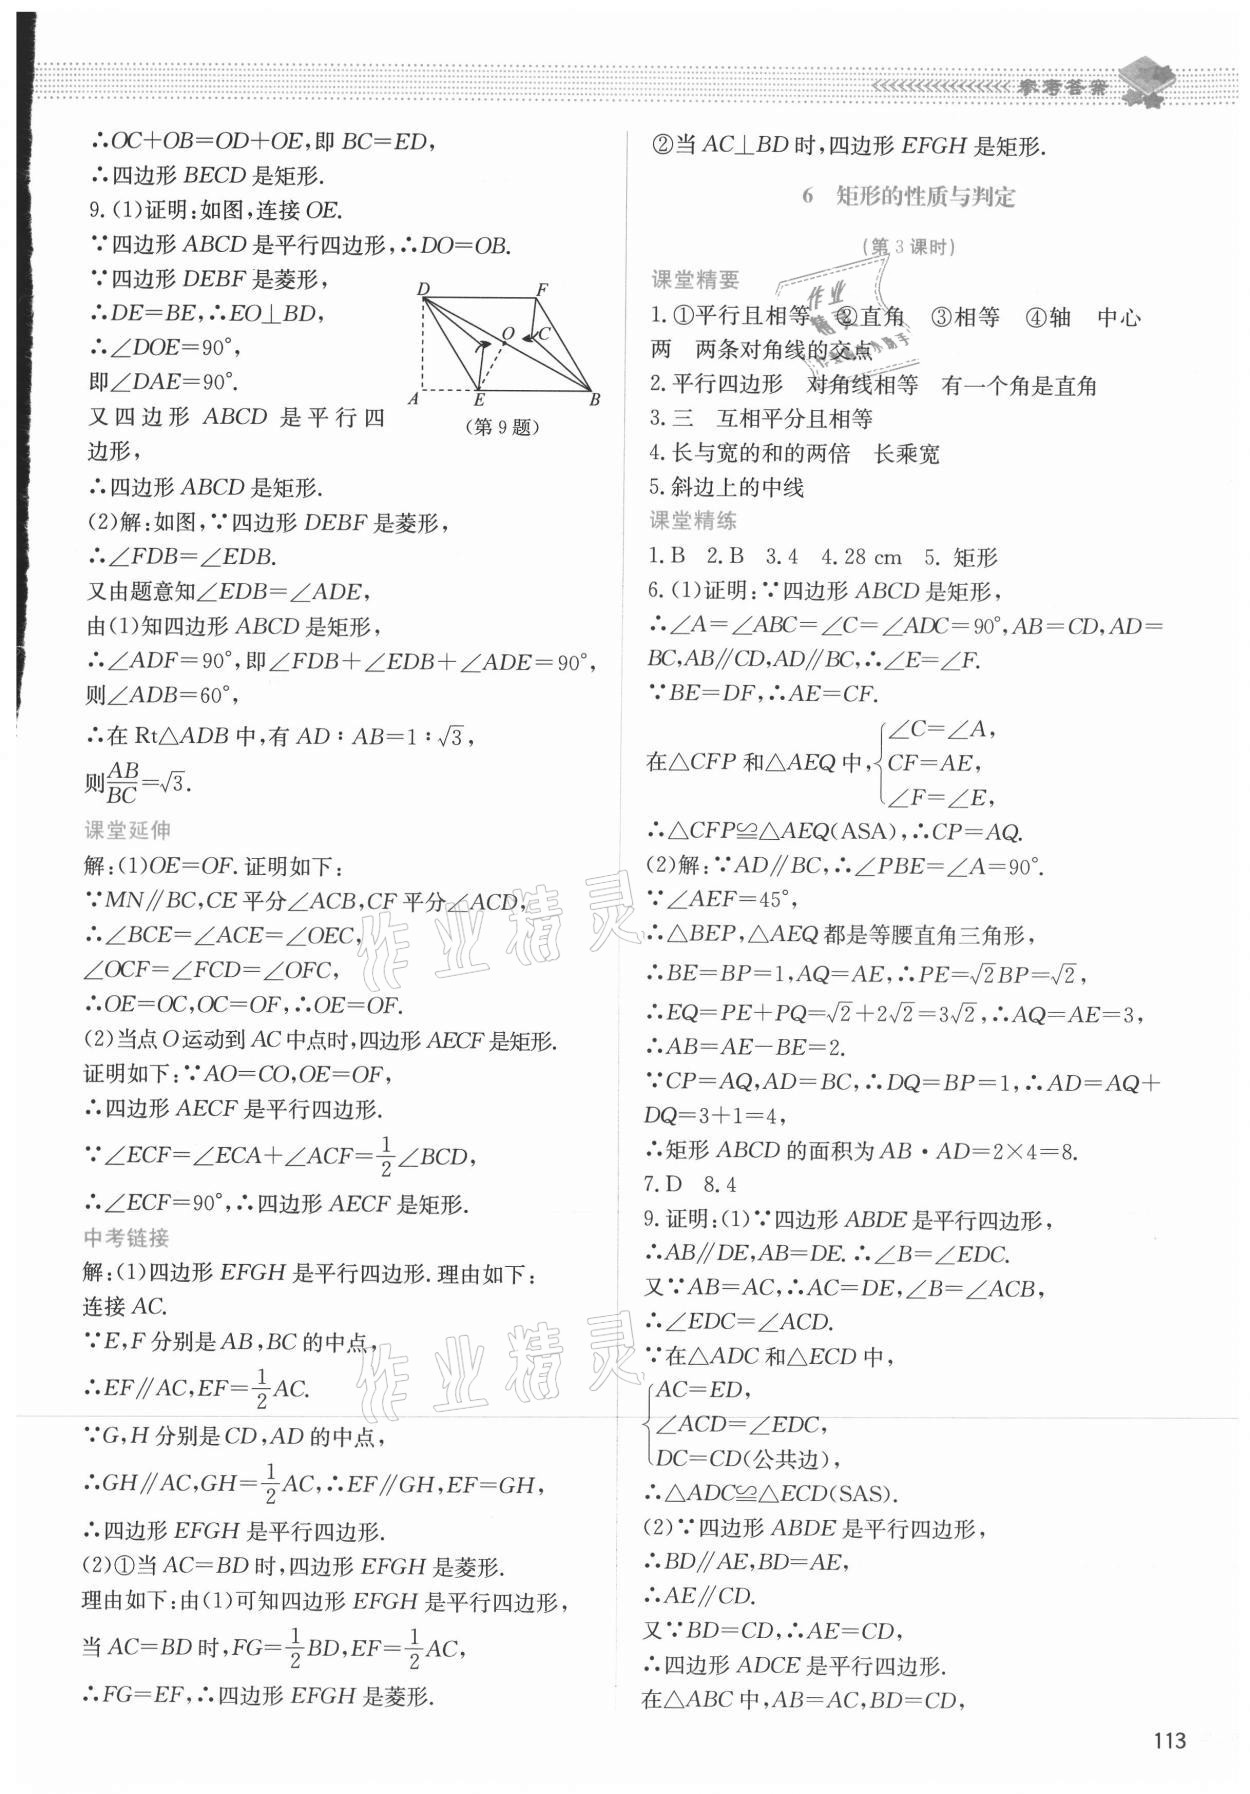 参考答案
∴OC+OB=OD+OE,即 BC=ED,
∴四边形 BECD 是矩形.
9.(1)证明:如图,连接 OE.
∵四边形 ABCD 是平行四边形,∴DO=OB.
∵四边形 DEBF 是菱形,
∴DE=BE,∴EO⊥BD,
∴∠DOE=90°,
即∠DAE=90°.
又四边形 ABCD 是平行四
边形,
D F O C A E B
(第 9 题)
∴四边形 ABCD 是矩形.
(2)解:如图,∵四边形 DEBF 是菱形,
∴∠FDB=∠EDB.
又由题意知∠EDB=∠ADE,
由(1)知四边形 ABCD 是矩形,
∴∠ADF=90°,即∠FDB+∠EDB+∠ADE=90°,
则∠ADB=60°,
∴在 Rt△ADB 中,有 AD∶AB=1∶√3,
则AB/BC=√3.
课堂延伸
解:(1)OE=OF.证明如下:
∵MN∥BC,CE 平分∠ACB,CF 平分∠ACD,
∴∠BCE=∠ACE=∠OEC,
∠OCF=∠FCD=∠OFC,
∴OE=OC,OC=OF,∴OE=OF.
(2)当点 O 运动到 AC 中点时,四边形 AECF 是矩形.
证明如下:∵AO=CO,OE=OF,
∴四边形 AECF 是平行四边形.
∵∠ECF=∠ECA+∠ACF=1/2∠BCD,
∴∠ECF=90°,∴四边形 AECF 是矩形.
中考链接
解:(1)四边形 EFGH 是平行四边形.理由如下:
连接 AC.
∵E,F 分别是 AB,BC 的中点,
∴EF∥AC,EF=1/2AC.
∵G,H 分别是 CD,AD 的中点,
∴GH∥AC,GH=1/2AC,∴EF∥GH,EF=GH,
∴四边形 EFGH 是平行四边形.
(2)①当 AC=BD 时,四边形 EFGH 是菱形.
理由如下:由(1)可知四边形 EFGH 是平行四边形,
当 AC=BD 时,FG=1/2BD,EF=1/2AC,
∴FG=EF,∴四边形 EFGH 是菱形.
②当 AC⊥BD 时,四边形 EFGH 是矩形.
6 矩形的性质与判定
(第 3 课时)
课堂精要
1.①平行且相等 ②直角 ③相等 ④轴 中心
两 两条对角线的交点
2.平行四边形 对角线相等 有一个角是直角
3.三 互相平分且相等
4.长与宽的和的两倍 长乘宽
5.斜边上的中线
课堂精练
1.B 2.B 3.4 4.28 cm 5. 矩形
6.(1)证明:∵四边形 ABCD 是矩形,
∴∠A=∠ABC=∠C=∠ADC=90°,AB=CD,AD=
BC,AB∥CD,AD∥BC,∴∠E=∠F.
∵BE=DF,∴AE=CF.
在△CFP 和△AEQ 中,{∠C=∠A,
CF=AE,
∠F=∠E,
∴△CFP≌△AEQ(ASA),∴CP=AQ.
(2)解:∵AD∥BC,∴∠PBE=∠A=90°.
∵∠AEF=45°,
∴△BEP,△AEQ 都是等腰直角三角形,
∴BE=BP=1,AQ=AE,∴PE=√2BP=√2,
∴EQ=PE+PQ=√2+2√2=3√2,∴AQ=AE=3,
∴AB=AE−BE=2.
∵CP=AQ,AD=BC,∴DQ=BP=1,∴AD=AQ+
DQ=3+1=4,
∴矩形 ABCD 的面积为 AB·AD=2×4=8.
7.D 8.4
9.证明:(1)∵四边形 ABDE 是平行四边形,
∴AB∥DE,AB=DE.∴∠B=∠EDC.
又∵AB=AC,∴AC=DE,∠B=∠ACB,
∴∠EDC=∠ACD.
∵在△ADC 和△ECD 中,
{AC=ED,
∠ACD=∠EDC,
DC=CD(公共边),
∴△ADC≌△ECD(SAS).
(2)∵四边形 ABDE 是平行四边形,
∴BD∥AE,BD=AE,
∴AE∥CD.
又∵BD=CD,∴AE=CD,
∴四边形 ADCE 是平行四边形.
在△ABC 中,AB=AC,BD=CD,
113
作业精灵
作业精灵
作业
精灵